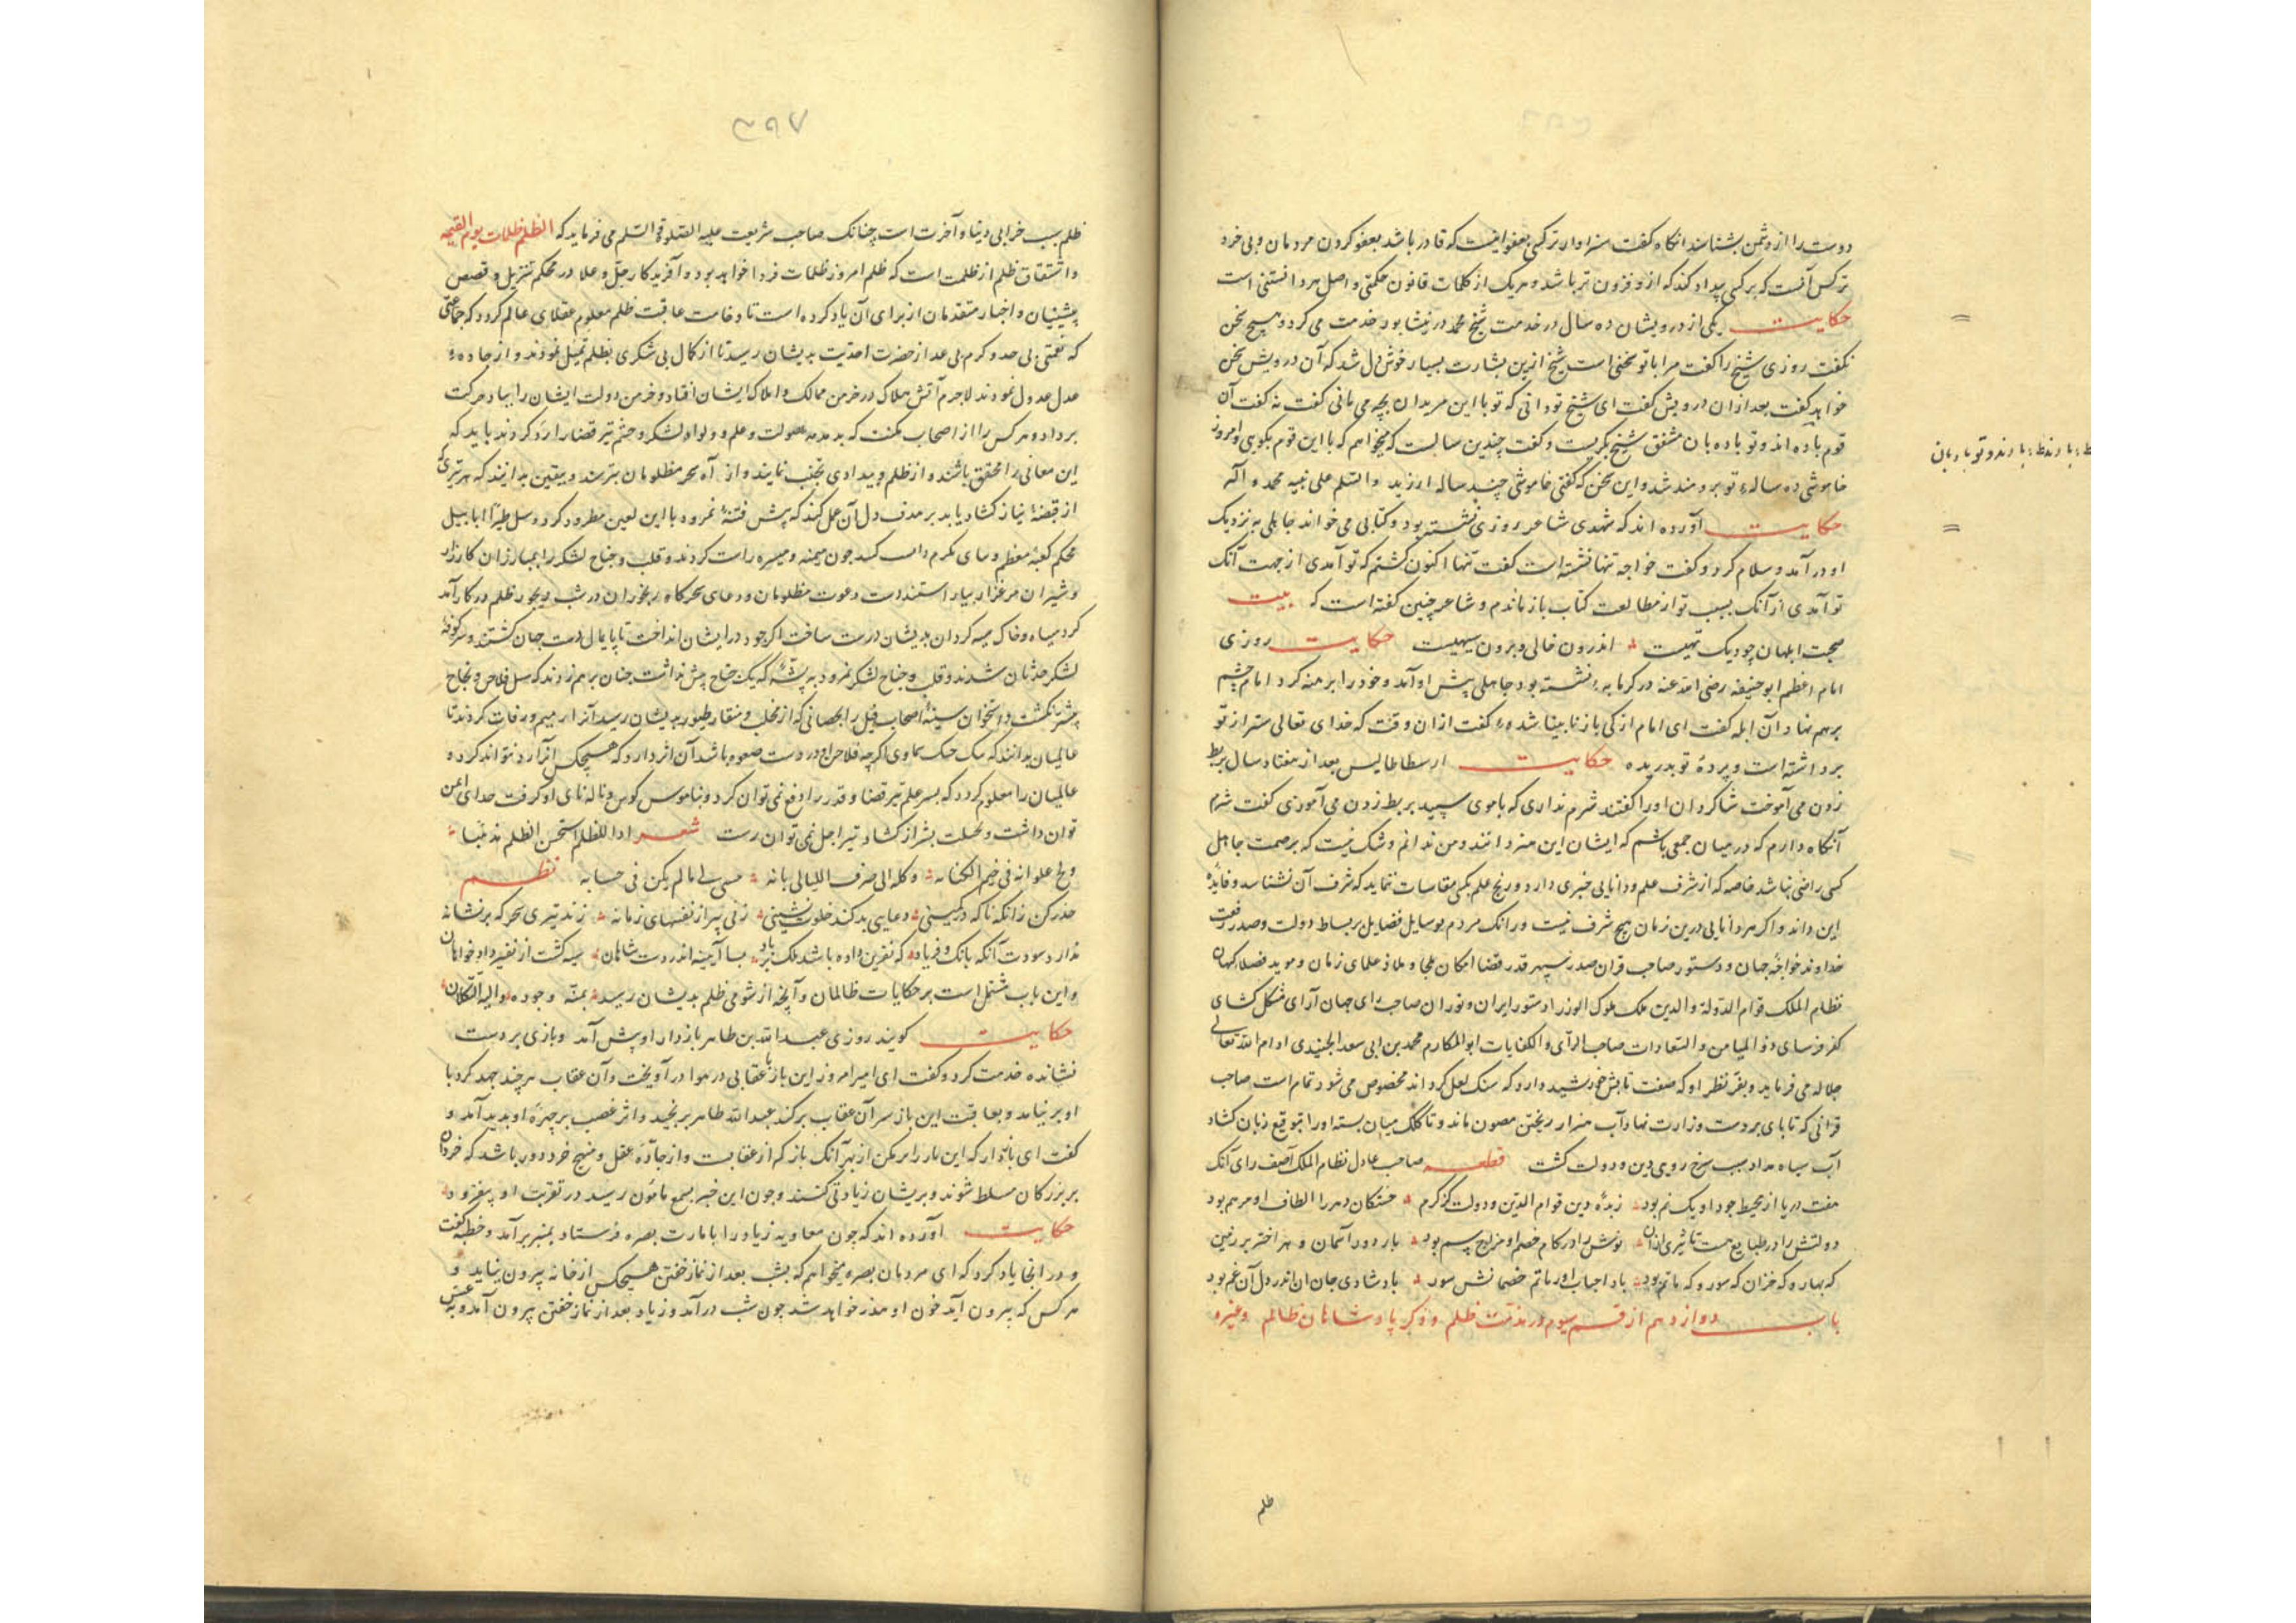 دوست را از دشمن بشناسد آنگاه گفت سزاوار ترکسی بعفو آنست که قادر باشد بعفو کردن مردمان و بی خرد
ترکس آنست که بر کسی بیداد کند که ازو فزون تر باشد و هر یک از کلمات قانون حکمتی و اصل هر دانستنی است
حکایت یکی از درویشان ده سال در خدمت شیخ محمد در نیشابور خدمت می کرد و هیچ سخن
نگفت روزی شیخ را گفت مرا با تو سخنی است شیخ ازین بشارت بسیار خوش دل شد که آن درویش سخن
خواهد گفت بعد از آن درویش گفت ای شیخ تو دانی که تو با این مریدان بچه می مانی گفت نه گفت آن
قوم باده اند و تو باده بان مشفق شیخ بگریست و گفت چندین سالست که میخواهم که با این قوم بگویی و امروز
خاموشی ده ساله تو برومند شد و این سخن که گفتی خاموشی چند ساله ارزید والسلم علی نبیه محمد و آله
حکایت آورده اند که شهدی شاعر روزی نشسته بود و کتابی می خواند جاهلی به نزدیک
او در آمد و سلام کرد و گفت خواجه تنها نشسته است گفت تنها اکنون گشتم که تو آمدی از جهت آنک
تو آمدی از آنک بسبب تو از مطالعت کتاب باز ماندم و شاعر چنین گفته است که بیت
صحبت ابلهان چو دیک تهیست اندرون خالی و برون سیهیست حکایت روزی
امام اعظم ابو حنیفه رضی الله عنه در گرمابه نشسته بود جاهلی پیش او آمد و خود را برهنه کرد امام چشم
بر هم نهاد آن ابله گفت ای امام از کی باز نابینا شده گفت از آن وقت که خدای تعالی ستر از تو
برداشته است و پرده تو بدریده حکایت ارسطاطالیس بعد از هفتاد سال بربط
زدن می آموخت شاگردان او را گفتند شرم نداری که با موی سپید بربط زدن می آموزی گفت شرم
آنگاه دارم که در میان جمعی باشم که ایشان این هنر دانند و من ندانم و شک نیست که بر صمت جاهل
کسی راضی نباشد خاصه که از شرف علم و دانایی خبری دارد و رنج علم بکسی مقاسات نماید که شرف آن نشناسد و فایده
این داند و اگر مر دانایی درین زمان هیچ شرف نیست ور انک مردم بوسایل فضایل بر بساط دولت و صدر رفعت
خداوند خواجه جهان و دستور صاحب قران صدر سپهر قدر قضا امکان ملجا و ملاذ علمای زمان و موید فضلا کیهان
نظام الملک قوام الدولة والدین ملک ملوک الوزرا دستور ایران و توران صاحب رای جهان آرای مشکل گشای
کفر فرسای ذو المیامن والسعادات صاحب الرای والکفایات ابو المکارم محمد بن ابی سعد الجنیدی ادام الله تعالی
جلاله می فرماید و بفر نظر او که صفت تابش خورشید دارد که سنک لعل کرداند مخصوص می شود تمام است صاحب
قرانی که تا پای بر دست وزارت نهاد آب هنر از ریختن مصون ماند و تا کلک میان بسته او را بتوقیع زبان کشاد
آب سیاه مداد سبب سرخ رویی دین و دولت گشت قطعه صاحب عادل نظام الملک آصف رای آنک
هفت دریا از محیط جود او یک نم بود زبده دین قوام الدین و دولت کز کرم خستگان دهر را الطاف او مرهم بود
دولتش را در طبایع هست تاثیری از آن نوش را در کام خصم او مزاج سم بود تا بر دور آسمان و بهر اختر بر زمین
که بهار و که خزان که سور و که ماتم بود باد احباب او را ماتم خصمانش سور باد شادی جان آن اندر دل آن غم بود
باب دوازدهم از قسم سیوم در مذمت ظلم و ذکر پادشاهان ظالم و غیره
ظلم
۳۹۷
ظلم سبب خرابی دنیا و آخرت است چنانک صاحب شریعت علیه الصلوة السلم می فرماید که الظلم ظلمات یوم القیمه
و اشتقاق ظلم از ظلمت است که ظلم امروز ظلمات فردا خواهد بود و آفریدکار جل و علا در محکم تنزیل و قصص
پیشینیان و اخبار متقدمان از برای آن یاد کرده است تا وخامت عاقبت ظلم معلوم عقلای عالم کردد که جماعتی
که نعمتی بی حد و کرم بی عد از حضرت احدیت بدیشان رسید تا از کمال بی شکری بظلم تمیل نمودند و از جاده
عدل عدول نمودند لاجرم آتش هلاک در خرمن ممالک و املاک ایشان افتاد و خرمن دولت ایشان را بباد حرکت
برداد و هر کس را از اصحاب مکنت که بدمدمه صولت و علم و ولواد لشکر و حشم تیر قضا را رد کردند باید که
این معانی را محقق باشند و از ظلم و بیدادی تجنب نمایند و از آه سحر مظلومان بترسند و بیقین بدانند که هر تیری که
از قبضه نیاز کشاد یابد بر هدف دل آن عمل کند که پیش فتنه نمرود با این لعین مطرود کرد و سل طیرا ابابیل
محکم کعبه معظم چون میمنه و میسره راست کردند و قلب و جناح لشکر را بمبارزان کارزار
و شیران مرغزار بیاراستند است دعوت مظلومان و دعای سحرگاه رنجوران در شب دیجور ظلم در کار آمد
کرد سیاه و خاک سیه کردان بدیشان درست ساخت اگر چه در ایشان انداخت تا پایمالی دست جهان گشتند و سر کوفته
لشکر حدثان شدند و قلب و جناح لشکر نمرود به پشه که یک جناح بیش نداشت چنان بر هم زدند که سل فلاح و نجاح
پیشتر نکشت و استخوان سینه اصحاب فیل را بحصاتی که از مخلب و منقار طیور بدیشان رسید آنرا رمیم و رفات کردند تا
عالمیان بدانند که سماوی اگرچه فلاخن او در دست صعوه باشد آن اثر دارد که هیچکس آنرا رد نتواند کرد و
عالمیان را معلوم کردد که بسر علم تیر قضا و قدر را دفع نمی توان کرد و بناموس کوس و ناله نای او کرفت خدای ایمن
توان داشت و بحیلت بشر از کشاد تیر اجل نمی توان رست شعر اذا الظلم استحسن الظلم مذهبا
ولج علوا فی قبیح اکتسابه وکله الی صرف اللیالی فانه سیبدی له ما لم یکن فی حسابه نظم
حذر کن زانکه ناکه در کمینی دعایی بد کند خلوت نشینی زنی پیر از نفسهای زمانه زند تیری سحر که بر نشانه
ندارد سودت آنکه بانک و فریاد که نفرین داده باشد ملک بر باد بسا آیینه اندر دست شاهان سیه گشت از نفیر داد خواهان
و این باب مشتمل است بر حکایات ظالمان و آنچه از شومی ظلم بدیشان رسید بمنه و جوده والیه التکلان
حکایت گویند روزی عبد الله بن طاهر بازدار او پیش آمد و بازی بر دست
نشانده خدمت کرد و گفت ای امیر امروز این باز با عقابی در هوا در آویخت و آن عقاب هر چند جهد کرد با
او بر نیامد و بعاقبت این باز سر آن عقاب برکند عبد الله طاهر برنجید و اثر غضب بر چهره او پدید آمد و
گفت ای بازدار که این باز را سر بکن از بهر آنک باز که از عقابست و از جاده عقل و منهج خرد دور باشد که خردان
بر بزرگان مسلط شوند و بر ایشان زیادتی کنند و چون این خبر بسمع مامون رسید در تقربت او بیفزود
حکایت آورده اند که چون معاویه زیاد را بامارت بصره فرستاد بمنبر برآمد و خطبه گفت
و در انجا یاد کرد که ای مردمان بصره میخواهم که بشب بعد از نماز خفتن هیچکس از خانه بیرون نیاید و
هر کس که بیرون آید خون او هدر خواهد شد چون شب درآمد و زیاد بعد از نماز خفتن بیرون آمد و به عسس